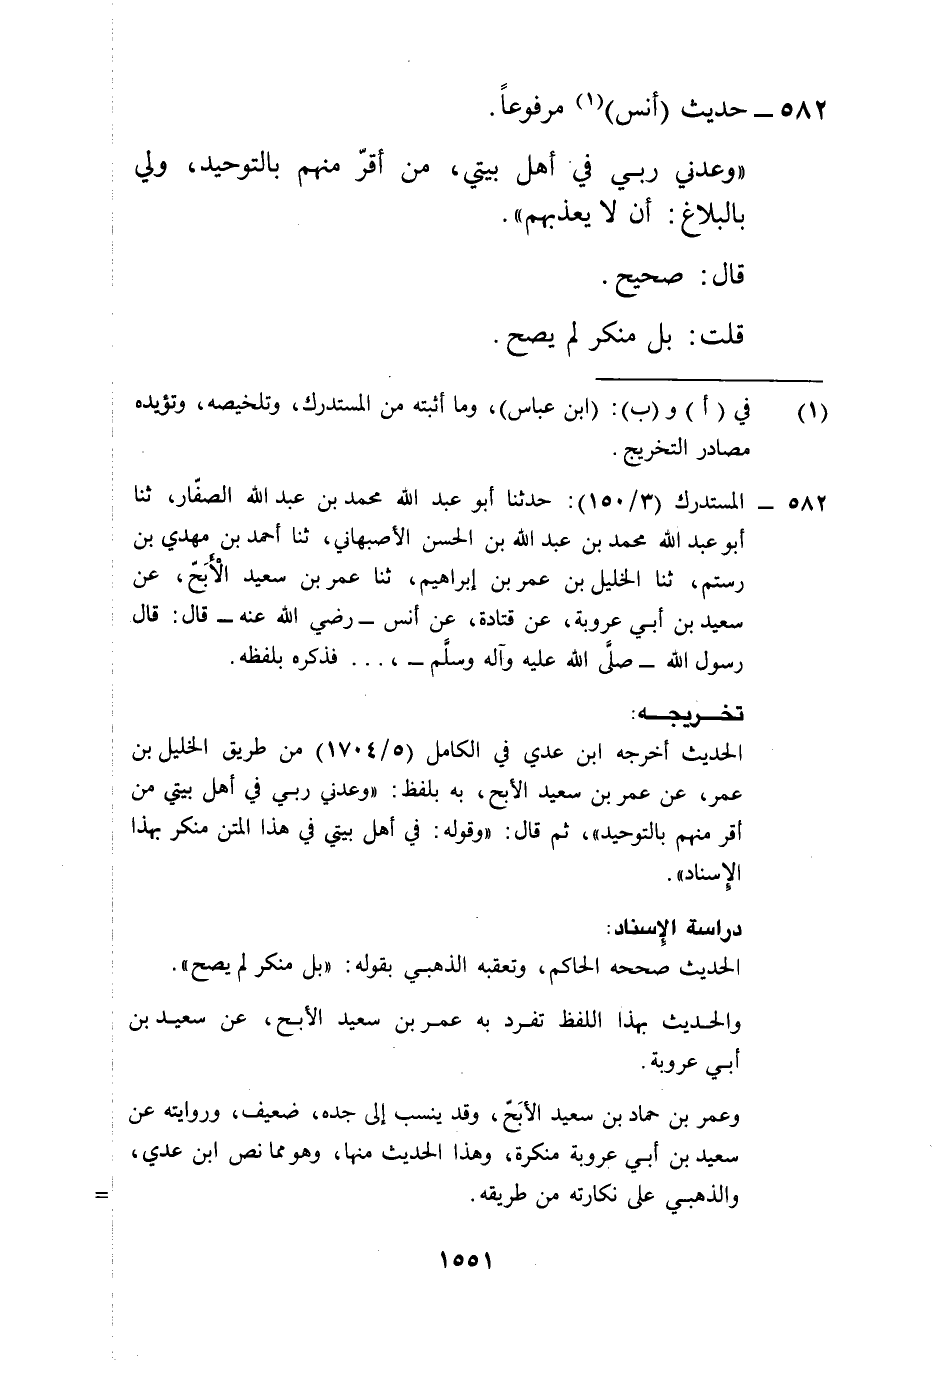 ٥٨٢ ــ حديث (أنس)(١) مرفوعاً.
«وعدني ربي في أهل بيتي، من أقرّ منهم بالتوحيد، ولي
بالبلاغ: أن لا يعذبهم».
قال: صحيح.
قلت: بل منكر لم يصح.
(١) في (أ) و (ب): (ابن عباس)، وما أثبته من المستدرك، وتلخيصه، وتؤيده
مصادر التخريج.
٥٨٢ ــ المستدرك (٣/١٥٠): حدثنا أبو عبد الله محمد بن عبد الله الصفّار، ثنا
أبو عبد الله محمد بن عبد الله بن الحسن الأصبهاني، ثنا أحمد بن مهدي بن
رستم، ثنا الخليل بن عمر بن إبراهيم، ثنا عمر بن سعيد الْأَبَحّ، عن
سعيد بن أبي عروبة، عن قتادة، عن أنس ــ رضي الله عنه ــ قال: قال
رسول الله ــ صلَّى الله عليه وآله وسلَّم ــ ، ... فذكره بلفظه.
تخريجه:
الحديث أخرجه ابن عدي في الكامل (٥/١٧٠٤) من طريق الخليل بن
عمر، عن عمر بن سعيد الأبح، به بلفظ: «وعدني ربي في أهل بيتي من
أقر منهم بالتوحيد»، ثم قال: «وقوله: في أهل بيتي في هذا المتن منكر بهذا
الإسناد».
دراسة الإسناد:
الحديث صححه الحاكم، وتعقبه الذهبي بقوله: «بل منكر لم يصح».
والحديث بهذا اللفظ تفرد به عمر بن سعيد الأبح، عن سعيد بن
أبي عروبة.
وعمر بن حماد بن سعيد الأبَحّ، وقد ينسب إلى جده، ضعيف، وروايته عن
سعيد بن أبي عروبة منكرة، وهذا الحديث منها، وهو مما نص ابن عدي،
والذهبي على نكارته من طريقه.
=
١٥٥١